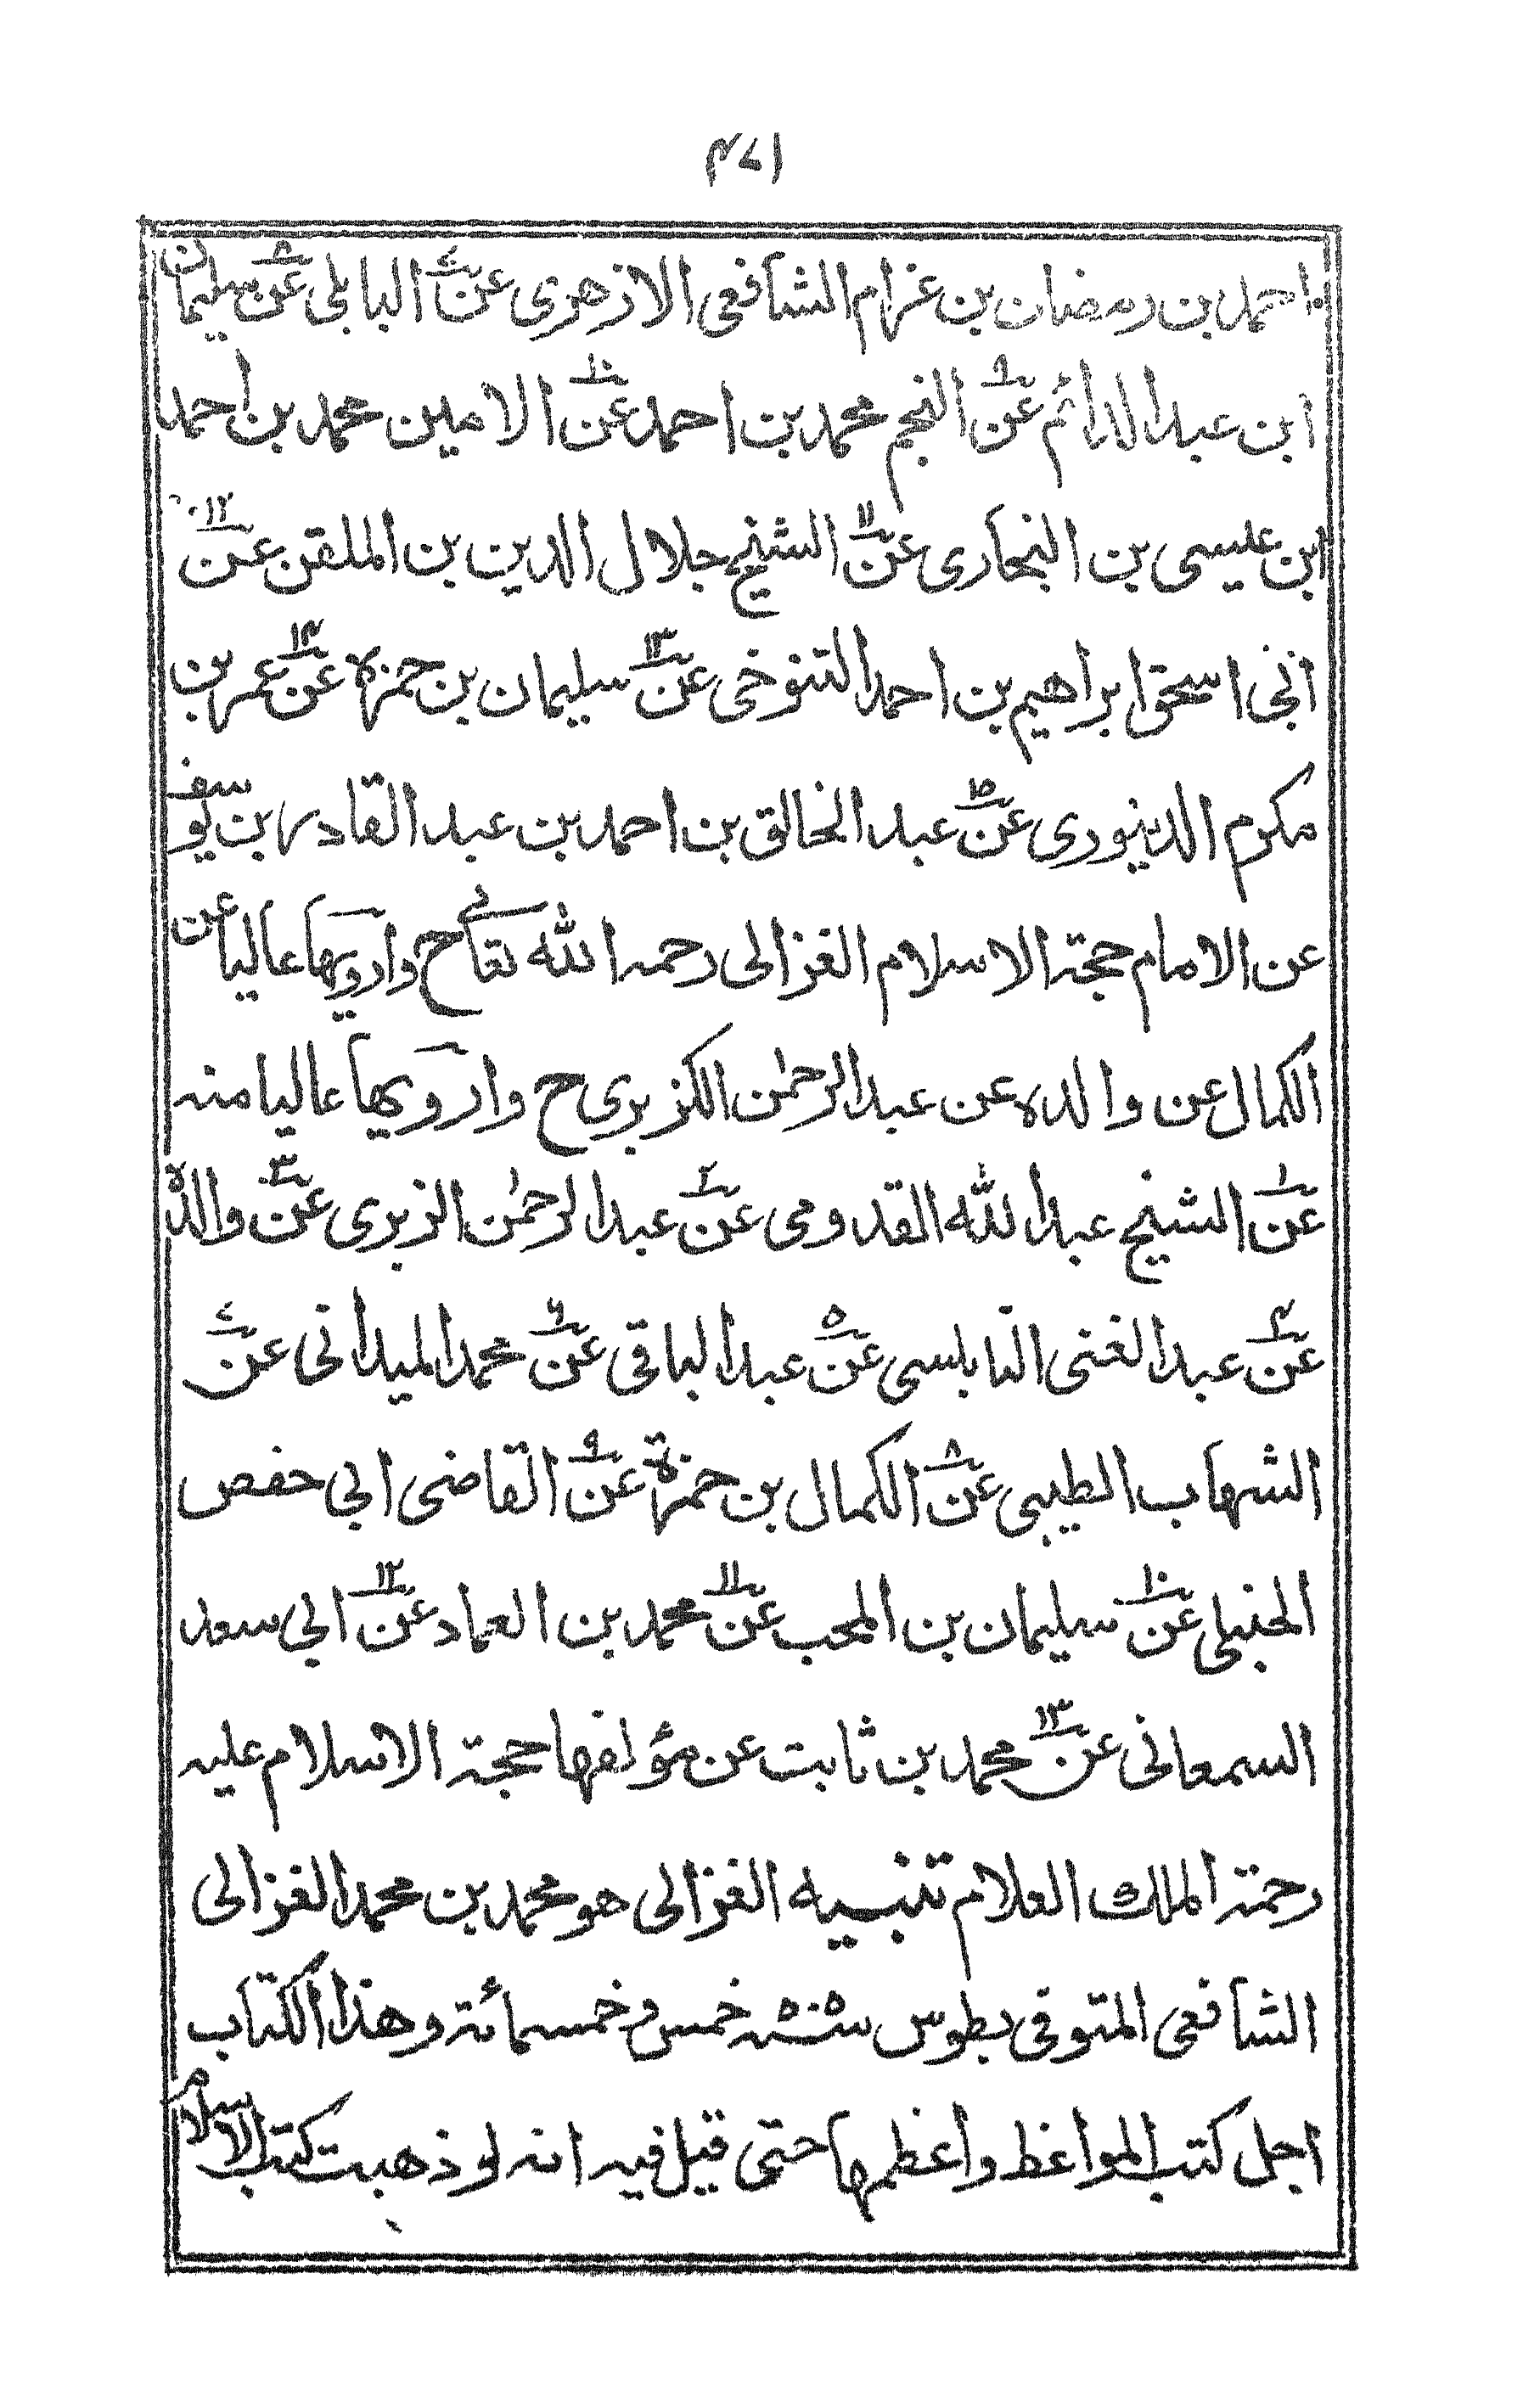 ٤٧١
احمد بن رمضان بن عزام الشافعى الازهرى عن٧ البابلى عن٨ سليمان
ابن عبد الدائم عن٩ النجم محمد بن احمد عن١٠ الامين محمد بن احمد
ابن عيسى بن النجارى عن١١ الشيخ جلال الدين بن الملقن عن١٢
ابى اسحق ابراهيم بن احمد التنوخى عن١٣ سليمان بن حمزة عن١٤ عمر بن
مكرم الدينورى عن١٥ عبد الخالق بن احمد بن عبد القادر بن يوسف
عن الامام حجة الاسلام الغزالى رحمه الله تعالى ح وارويها عاليا عن
الكمال عن والده عن عبد الرحمن الكزبرى ح وارويها عاليا منه
عن١ الشيخ عبد الله القدومى عن٢ عبد الرحمن الزبرى عن٣ والده
عن٤ عبد الغنى النابلسى عن٥ عبد الباقى عن٦ محمد الميدانى عن٧
الشهاب الطيبى عن٨ الكمال بن حمزة عن٩ القاضى ابى حفص
الحنبلى عن١٠ سليمان بن المحب عن١١ محمد بن العماد عن١٢ ابى سعد
السمعانى عن١٣ محمد بن ثابت عن مؤلفها حجة الاسلام عليه
رحمة الملك العلام تنبيه الغزالى هو محمد بن محمد الغزالى
الشافعى المتوفى بطوس سنة ٥٠٥ خمس وخمسمائة وهذا الكتاب
اجل كتب المواعظ واعظمها حتى قيل فيه انه لو ذهبت كتب الاسلام